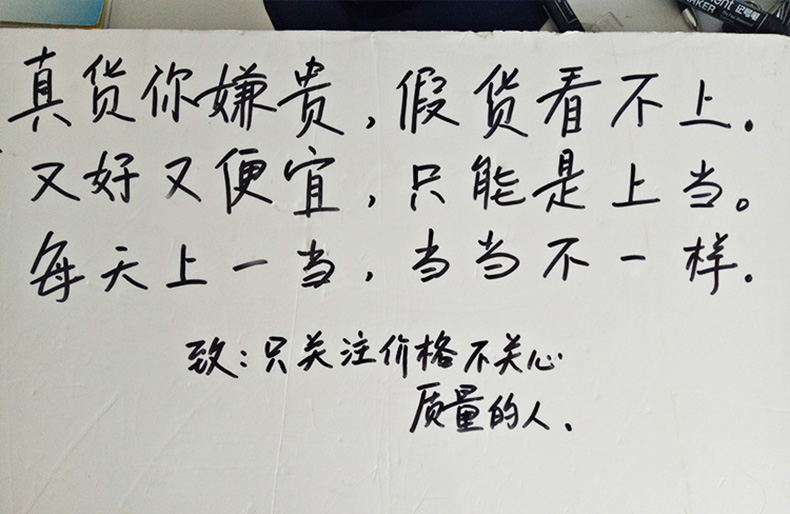 记号笔
真货你嫌贵,假货看不上。
又好又便宜,只能是上当。
每天上一当,当当不一样.
致:只关注价格不关心
质量的人.